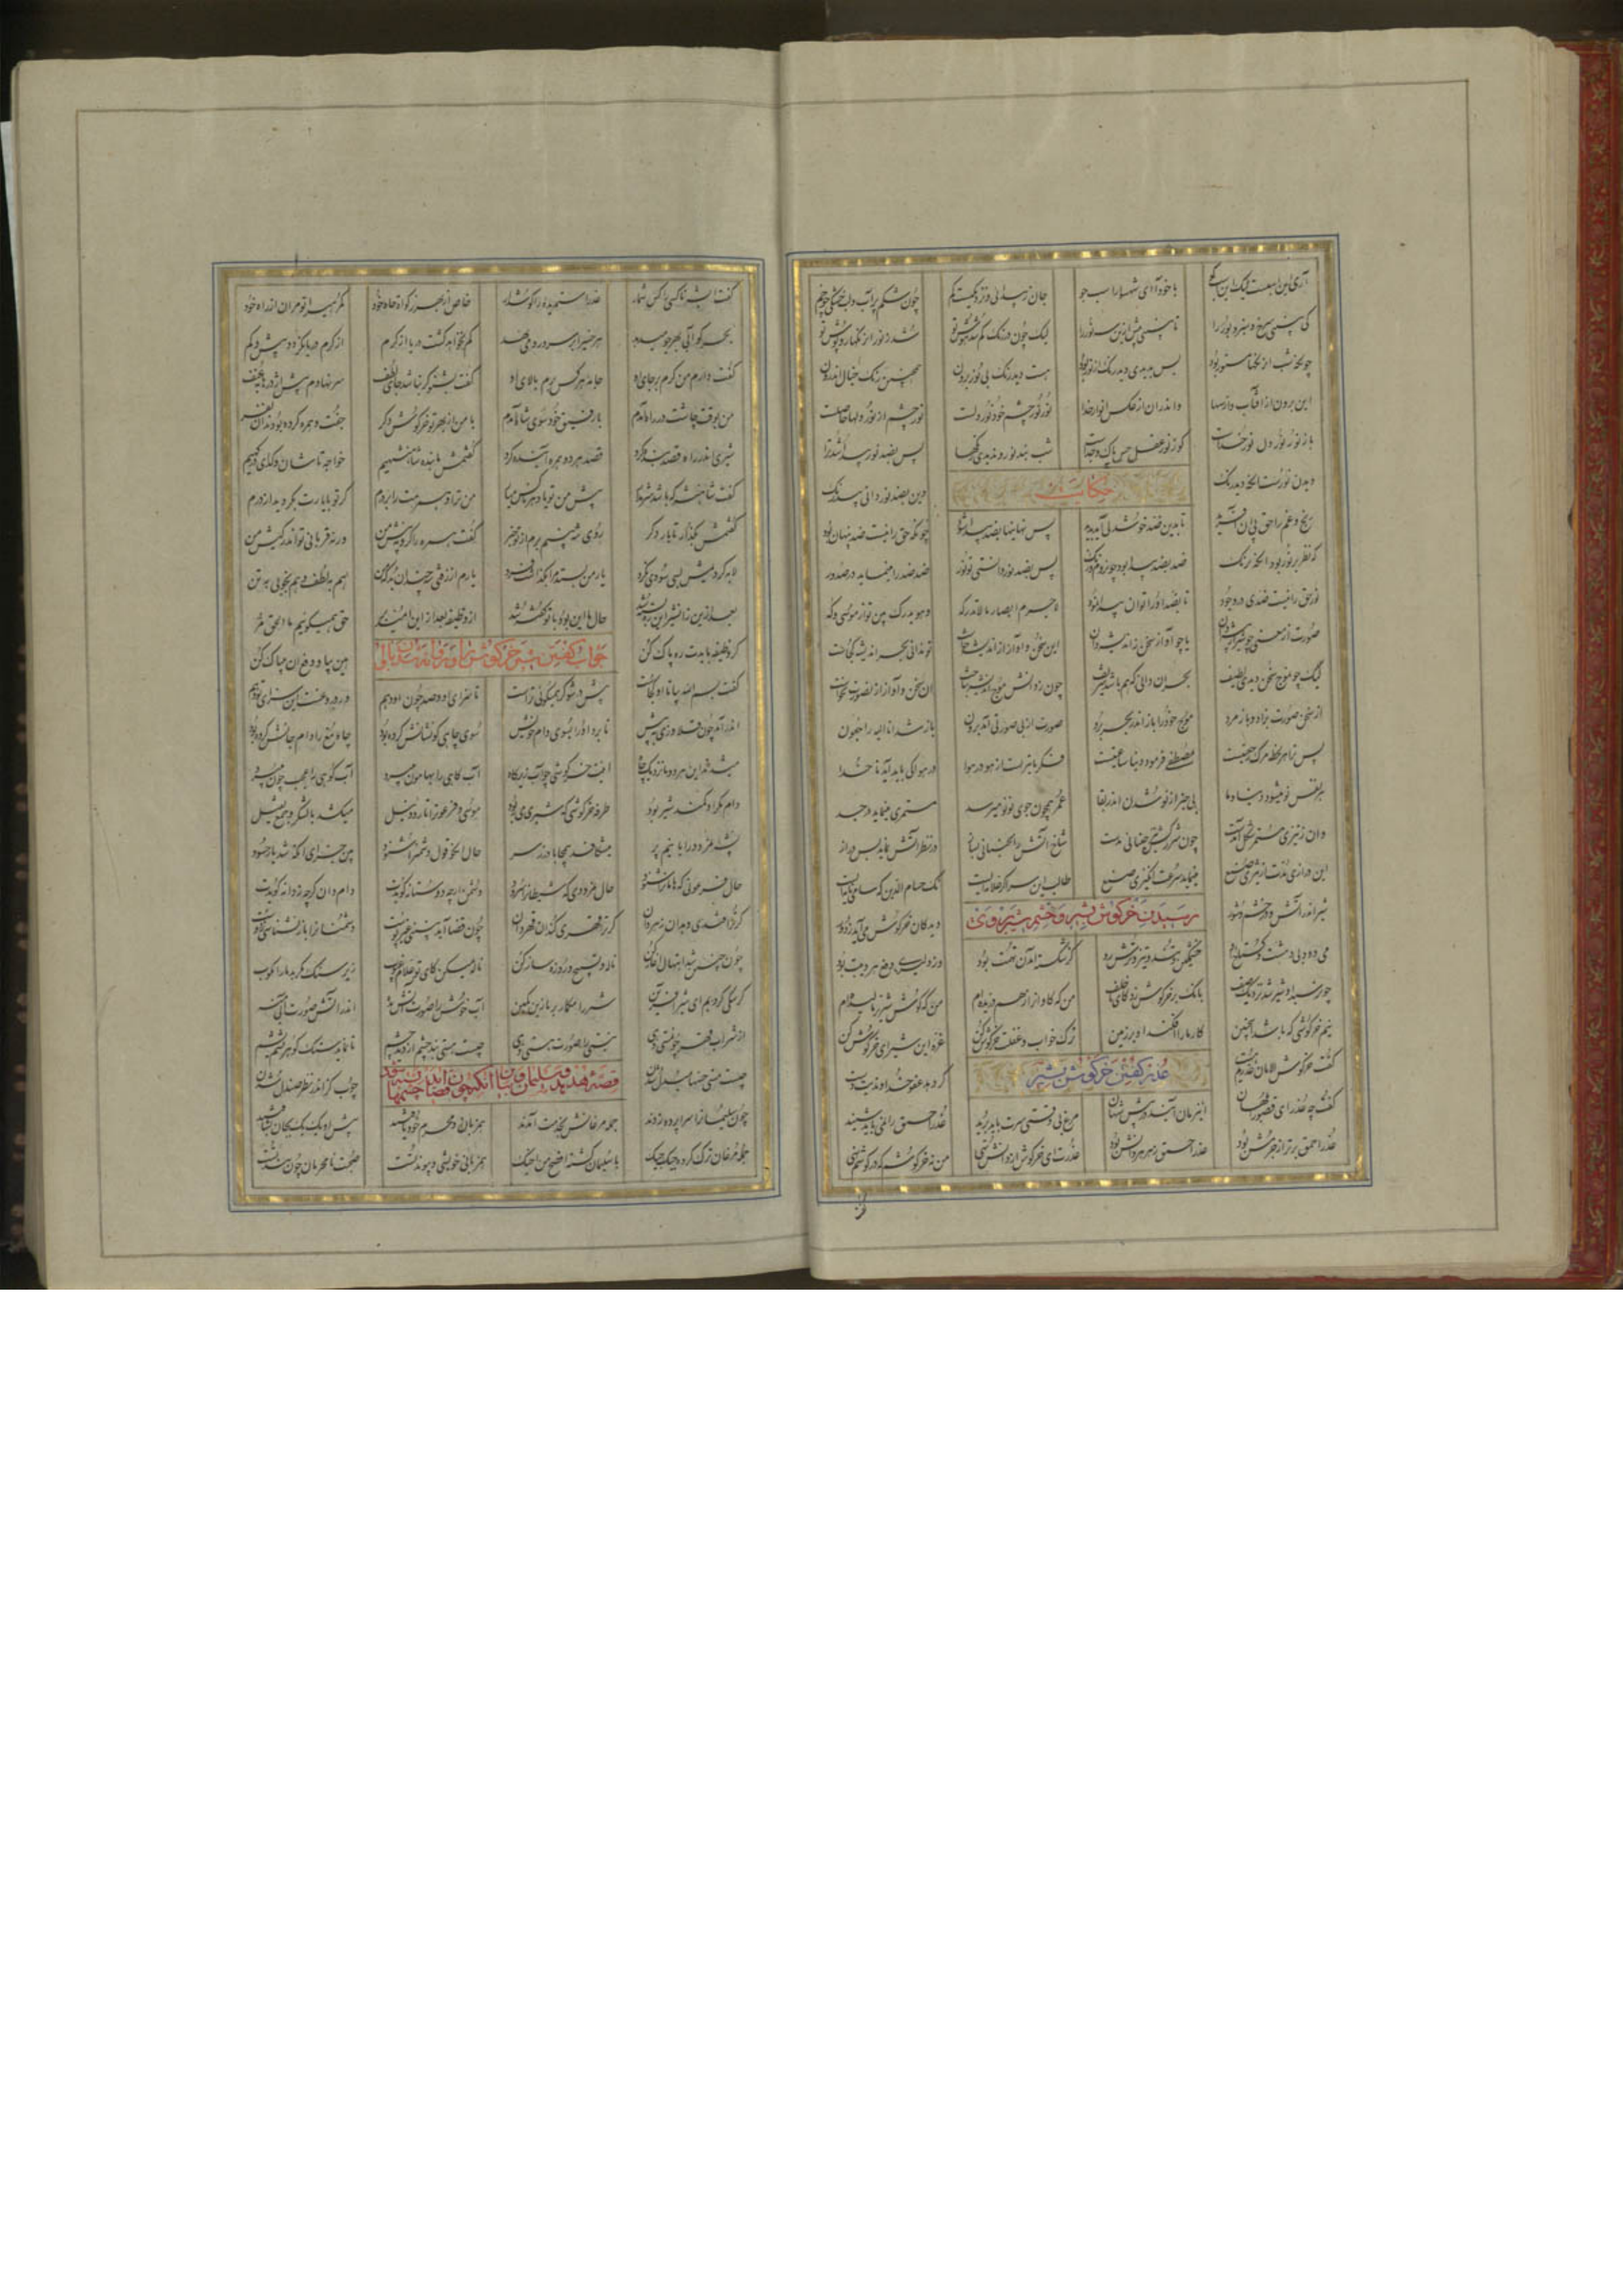 آری این اسبست لیک این اسب کو با خود آ ای شهسوار اسب جو جان ز پیدائی و نزدیکیست گم چون شکم پر آب و لب خشکی چو خم
کی ببینی سرخ و سبز و بور را تا نبینی پیش ازین سه نور را لیک چون در رنگ گم شد هوش تو شد ز نور آن رنگها روپوش تو
چونکه شب آن رنگها مستور بود پس بدیدی دید رنگ از نور بود نیست دید رنگ بی نور برون همچنین رنگ خیال اندرون
این برون از آفتاب و از سها واندران از عکس انوار خدا نور نور چشم خود نور دلست نور چشم از نور دلها حاصلست
باز نور نور دل نور خداست کو ز نور عقل و حس پاک و جداست شب نبد نور و ندیدی رنگها پس بضد نور پیدا شد ترا
دیدن نورست آنگه دید رنگ وین بضد نور دانی بی درنگ
حکایت
رنج و غم را حق پی آن آفرید تا بدین ضد خوشدلی آید پدید پس نهانیها بضد پیدا شود چونکه حق را نیست ضد پنهان بود
که نظر بر نور بود آنگه برنگ ضد بضد پیدا بود چون روم و زنگ پس بضد نور دانستی تو نور ضد ضد را مینماید در صدور
نور حق را نیست ضدی در وجود تا بضد او را توان پیدا نمود لاجرم ابصار ما لا تدرکه و هو یدرک بین تو از موسی و که
صورت از معنی چو شیر از بیشه دان یا چو آواز سخن ز اندیشه دان این سخن و آواز از اندیشه خاست تو ندانی بحر اندیشه کجاست
لیک چو موج سخن دیدی لطیف بحر آن دانی که هم باشد شریف چون ز دانش موج اندیشه بتاخت از سخن و آواز او صورت بساخت
از سخن صورت بزاد و باز مرد موج خود را باز اندر بحر برد صورت از بی صورتی آمد برون باز شد انا الیه راجعون
پس ترا هر لحظه مرگ و رجعتیست مصطفی فرمود دنیا ساعتیست فکر ما تیریست از هو در هوا در هوا کی پاید آید تا خدا
هر نفس نو میشود دنیا و ما بی خبر از نو شدن اندر بقا عمر همچون جوی نو نو میرسد مستمری مینماید در جسد
وان ز تیزی مستمر شکل آمدست چون شرر کش تیز جنبانی بدست شاخ آتش را بجنبانی بساز در نظر آتش نماید بس دراز
این درازی مدت از تیزی صنع مینماید سرعت انگیزی صنع طالب این سر اگر علامه ایست نک حسام الدین که سامی نامه ایست
شیر اندر آتش و در خشم و شور دید کان خرگوش می آید ز دور
رسیدن خرگوش بشیر و خشم شیر بر وی
می دود بی دهشت و گستاخ او خشمگین و تند و تیز و ترش رو کز شکسته آمدن تهمت بود وز دلیری دفع هر ریبت بود
چون رسید او پیشتر نزدیک صف بانگ بر خرگوش زد کای ناخلف من که گاوان را ز هم بدریده ام من که گوش شیر نر مالیده ام
نیم خرگوشی که باشد اینچنین کار ما را افکند او بر زمین ترک خواب و غفلت خرگوش کن غره این شیر ای خرگوش کن
گفت خرگوش الامان عذریم هست گر دهد عفو خداوندیت دست
عذر گفتن خرگوش بشیر
گفت چه عذر ای قصور ابلهان این زمان آیند در پیش شهان مرغ بی وقتی سرت باید برید عذر احمق را نمی باید شنید
عذر احمق بدتر از جرمش بود عذر احمق زهر هر دانش بود عذرت ای خرگوش از دانش تهی من نه خرگوشم که در گوشم نهی
گفت ای شه ناکسی را کس شمار عذر استم دیده را گوش دار خاص از بهر زکوة جاه خود گمرهی را تو مران از راه خود
بحر کو آبی بهر جو میدهد هر خسی را بر سر و رو می نهد کم نخواهد گشت دریا از کرم از کرم دریا نگردد بیش و کم
گفت دارم من کرم بر جای او جامه هر کس برم بالای او گفت بشنو گر نباشد جای لطف سر نهادم پیش اژدرهای عنف
من بوقت چاشت در راه آمدم با رفیق خود سوی شاه آمدم با من از بهر تو خرگوش دگر جفت و همره کرده بودند آن نفر
شیری اندر راه قصد بنده کرد قصد هر دو همره آینده کرد گفتمش ما بنده شاهنشهیم خواجه تاشان که آن درگهیم
گفت شاهنشه که باشد شرم دار پیش من تو یاد هر ناکس میار من ترا و شاهت را بر درم گر تو با یارت بگردید از درم
گفتمش بگذار تا بار دگر روی شه بینم برم از تو خبر گفت همره را گرو نه پیش من ورنه قربانی تو اندر کیش من
لابه کردیمش بسی سودی نکرد یار من بستد مرا بگذاشت فرد یارم از زفتی سه چندان بد که من هم بلطف و هم بخوبی هم بتن
بعد ازین زان شیر این ره بسته شد حال ما این بود با تو گفته شد از وظیفه بعد ازین امید بر حق همیگویم ترا و الحق مر
گر وظیفه بایدت ره پاک کن هین بیا و دفع آن بی باک کن
جواب گفتن شیر خرگوش را و روانه شدن با وی
گفت بسم الله بیا تا او کجاست پیش در شو گر همیگوئی تو راست تا سزای او و صد چون او دهم ور دروغست این سزای تو دهم
اندر آمد چون قلاوزی بپیش تا برد او را بسوی دام خویش سوی چاهی کو نشانش کرده بود چاه مغ را دام جانش کرده بود
میشدند این هر دو تا نزدیک چاه اینت خرگوشی چو آب زیر کاه آب کاهی را بهامون میبرد آب کوهی را عجب چون میبرد
دام مکر او کمند شیر بود طرفه خرگوشی که شیری می ربود موسی فرعون را تا رود نیل میکشد با لشکر و جمع ثقیل
پشه نمرود را با نیم پر میشکافد بی محابا درز سر حال آنکو قول دشمن را شنود بین جزای آنکه شد یار حسود
حال فرعونی که هامان را شنود حال نمرودی که شیطان را ستود دشمن ارچه دوستانه گویدت دام دان گرچه ز دانه گویدت
گر ترا قندی دهد آن زهر دان گر بتن لطفی کند آن قهر دان چون قضا آید نبینی غیر پوست دشمنان را باز نشناسی ز دوست
چون چنین شد ابتهال آغاز کن ناله و تسبیح و روزه ساز کن ناله میکن کای تو علام الغیوب زیر سنگ مکر بد ما را مکوب
گر سگی کردیم ای شیر آفرین شیر را مگمار بر ما زین کمین آب خوش را صورت آتش مده اندر آتش صورت آبی منه
از شراب قهر چون مستی دهی نیستها را صورت هستی دهی چیست مستی بند چشم از دید چشم تا نماید سنگ گوهر پشم یشم
چیست مستی حسها مبدل شدن چوب گز اندر نظر صندل شدن
قصه هدهد و سلیمان و بیان آنکه چون قضا آید چشمها بسته شود
چون سلیمان را سراپرده زدند جمله مرغانش بخدمت آمدند همزبان و محرم خود یافتند پیش او یک یک بجان بشتافتند
جمله مرغان ترک کرده جیک جیک با سلیمان گشته افصح من اخیک همزبانی خویشی و پیوندیست